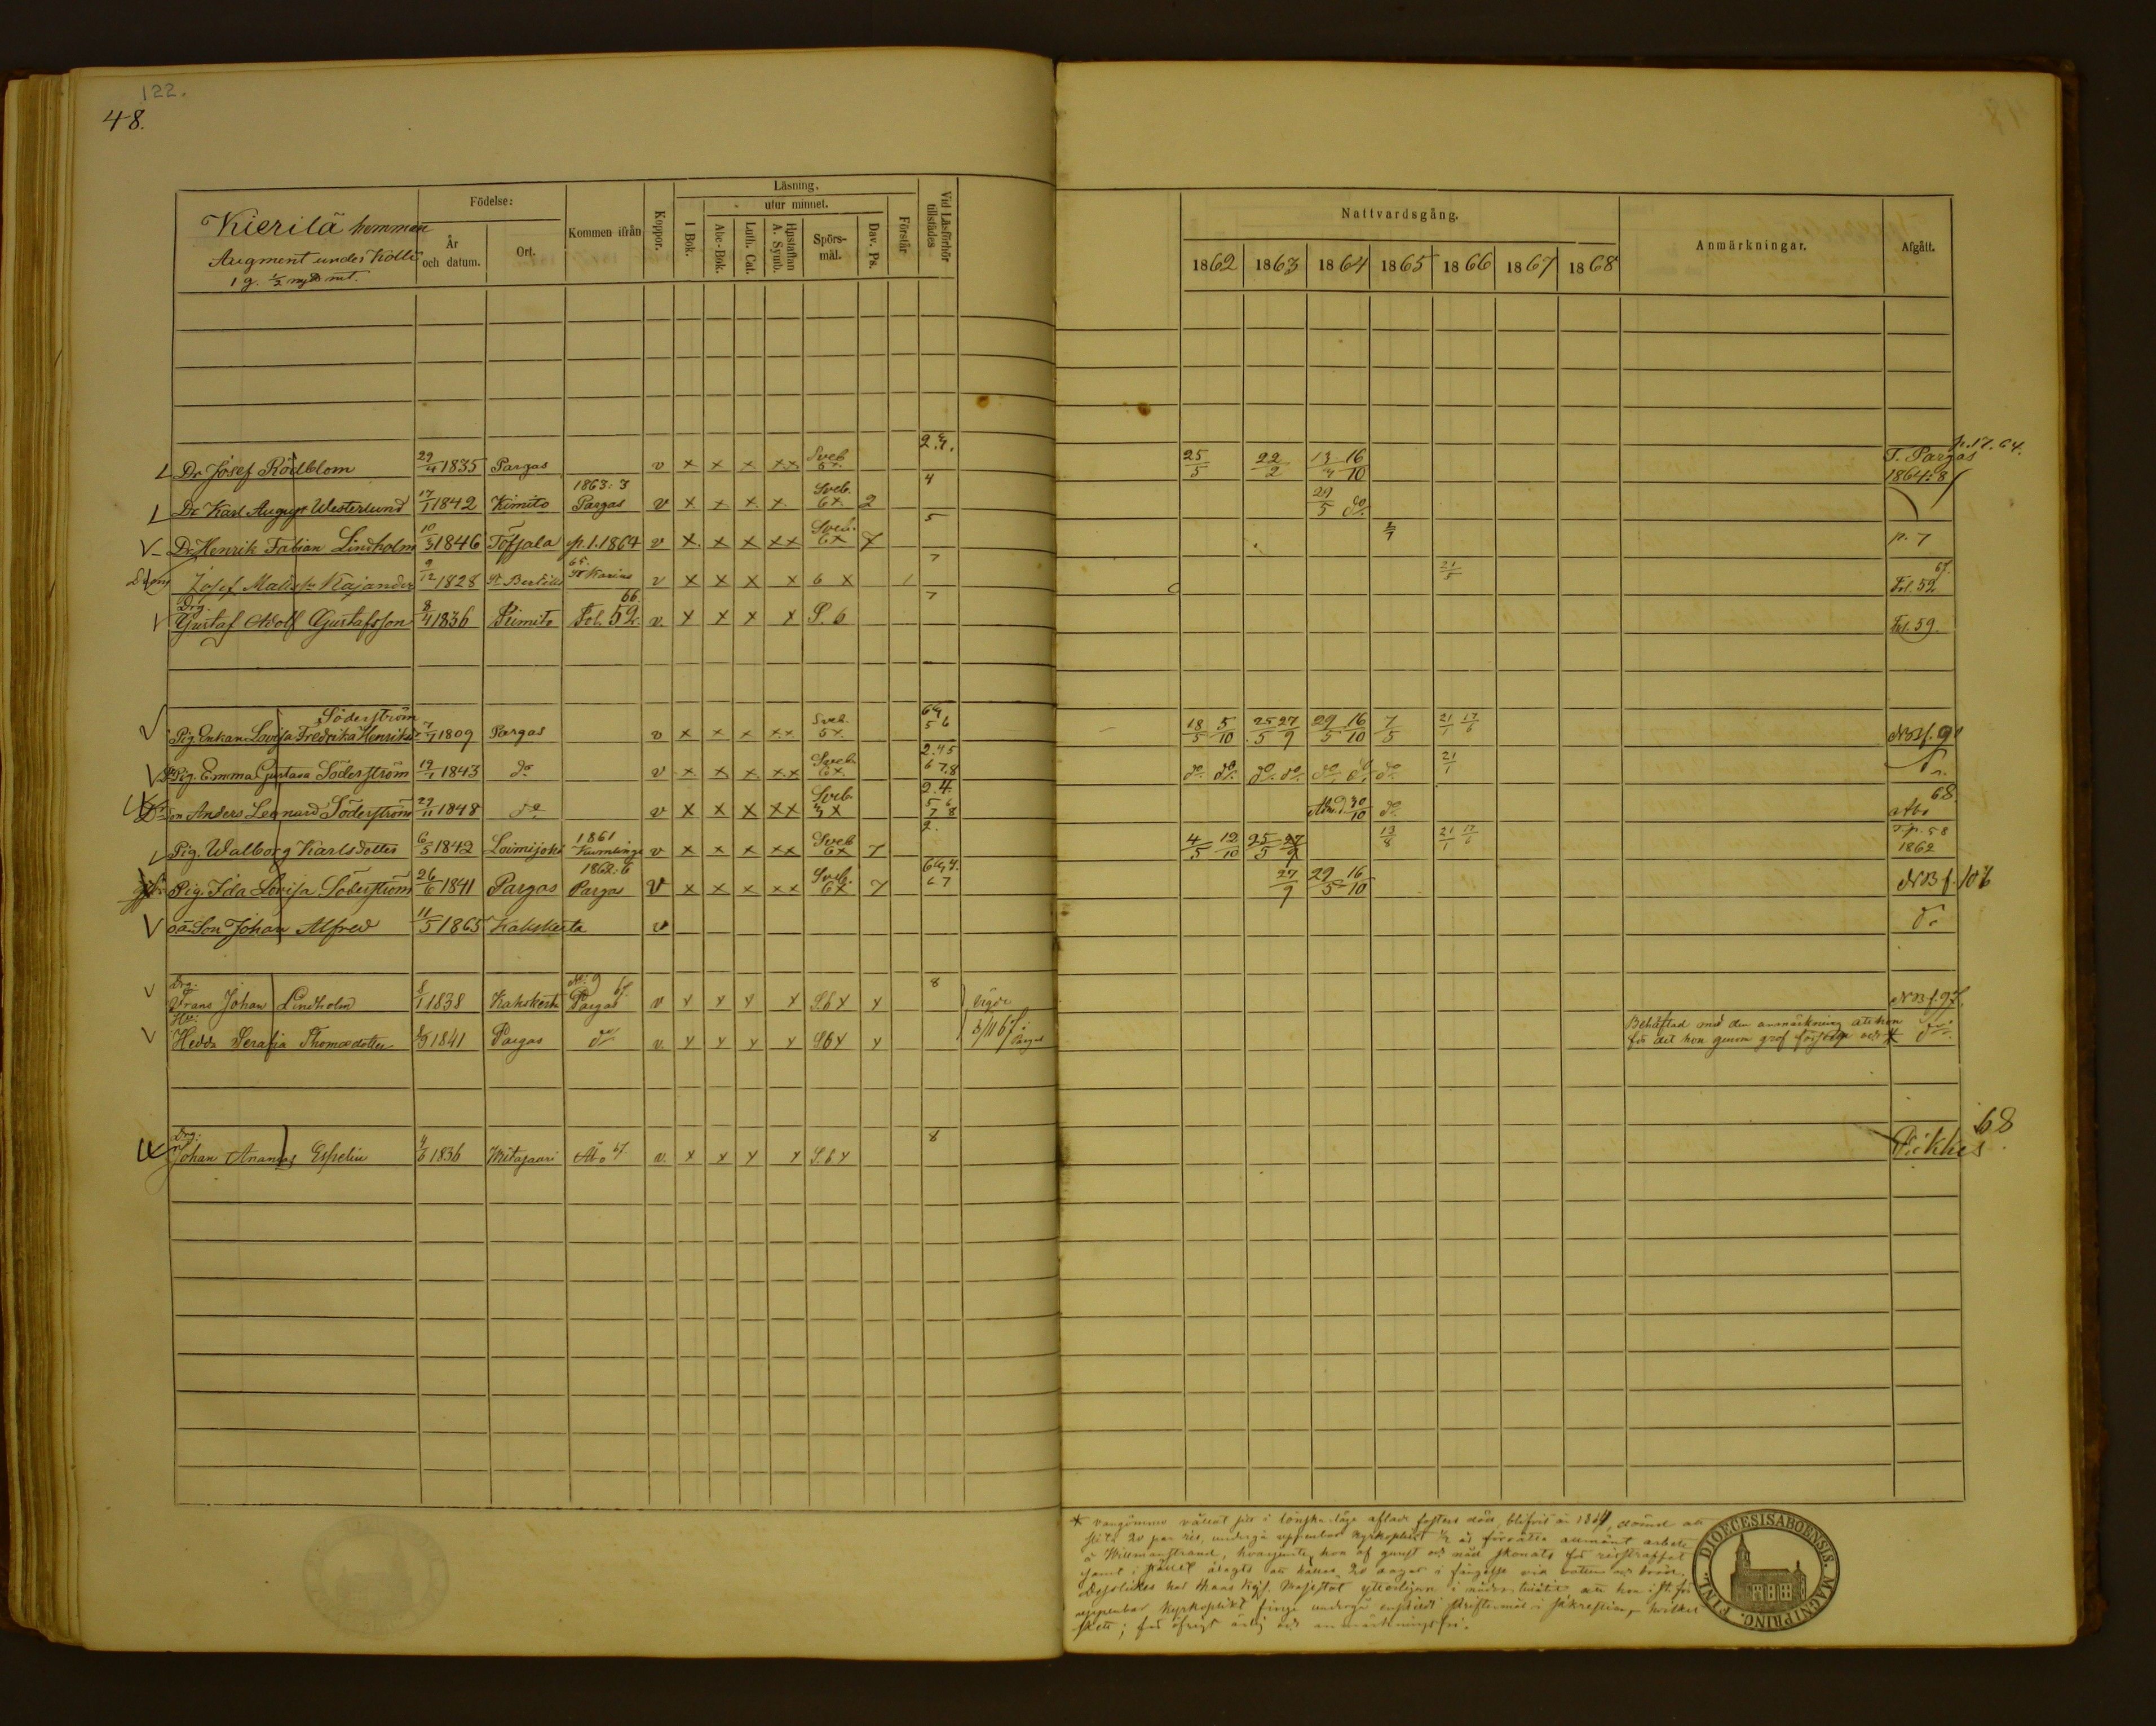 122.
48.
Kierilä hemman
Augment under Kölli
1 g. 1/2 mt.
Födelse:
År och datum.
Ort.
Kommen ifrån
Koppor.
Läsning.
I Bok.
utur minnet.
Abc-Bok.
Luth. Cat.
Hustaflan A. Symb.
Spörsmål.
Dav. Ps.
Förstår
Vid Läsförhör tillstädes
Nattvardsgång.
1862 1863 1864 1865 1866 1867 1868
Anmärkningar.
Afgått.
Dr. Josef Rödblom 29/4 1835 Pargas v x x x xx Sveb 5x. 2.4. 25/5 22/2 13/3 16/10 T. Pargas 1864:8 p.17.64.
Dr. Karl August Westerlund 17/1 1842 Kimito 1863:3 Pargas v x x x x. Sveb. 6x. 2 4 29/5 do
Dr. Henrik Fabian Lindholm 10/3 1846 Töfsala p.1.1864 v x x x xx Sveb. 6x 7 5 p. 7
Josef Matts Kajander 9/12 1828 St Bertils 65. St Karins v x x x x 6 x / 7 21/5 67. Fol. 52
Drg. Gustaf Adolf Gustafsson 8/4 1836 Kimito 66. Fol. 52. v. x x x x S. 6 7 Fol. 59.
Söderström
Pig. Enkan Lovisa Fredrika Henriksd. 7/7 1809 Pargas v x x x xx Sveb. 5x. 64 56 18/5 5/10 25/5 27/9 29/5 16/10 7/5 21/1 17/6 NB f. 9
Pig. Emma Gustava Söderström 19/1 1843 do v x x x xx Sveb. 6x. 2.45 678 do do do do do do do 21/1
son Anders Leonard Söderström 29/11 1848 do v x x x xx Sveb 3x 2.4. 56 78 Adm. d. 30/10 do 68. Åbo
Pig. Walborg Karlsdotter 6/5 1842 Loimijoki 1861 Kumlinge v x x x xx Sveb 6x 7 2. 4/5 12/10 25/5 27/9 13/8 21/1 17/6 T.p. 58 1862
Pig. Ida Lovisa Söderström 26/6 1841 Pargas 1862:6 Pargas v x x x xx Sveb. 6x 7 64,4. 67 27/9 29/5 16/10 NB f. 107
oä. Son Johan Alfred 11/5 1865 Kakskerta v do
Drg: Frans Johan Lindholm 8/1 1838 Kakskerta No: 9 Pargas 67. v x x x x S.6x x 8 NB f. 97.
Hu: Hedda Serafia Thomædotter 1841 Pargas do v x x x x S6x x 3/11 67 i Pargas
Behäftad med den anmärkning att hon för det hon genom grof förseelse och * do
Drg: Johan Ananias Espelin 4/6 1836 Åbo 67. v. x x x x S.6.x 8 Piikkis 68.
* vangömmo vållat sitt i lönska läge aflade fosters död, blifvit år 1864, dömd att
slita 20 par ris, undergå uppenbar kyrkoplikt 1/2 år förrätta allmänt arbete
å Willmanstrand, hvarjemte hon af gunst och nåd skonats för risstraffet
samt i stället ålagts att hållas 20 dagar i fängelse vid vatten och bröd.
Desslikes har Hans Kejs. Majestät ytterligare i nåder tillåtit att hon i st. för
uppenbar kyrkoplikt finge undergå enskildt skriftermål i sakristian hvilket
skett; för öfrigt ärlig och anmärkningsfri.
FINL. DIOECESIS ABOENSIS. MAGNI PRINC.